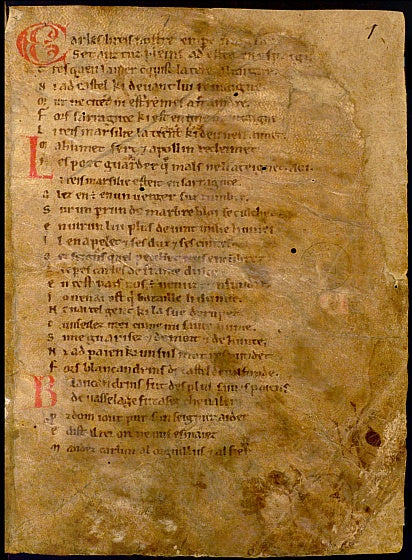 Carles li reis nostre emper
Set anz tuz pleins ad estet en espaigne
Tresquen la mer cunquist la tere altaigne
N i ad castel ki deuant lui remaigne
Mur ne citet ni est remes a fraindre
Fors sarraguce ki est en une muntaigne
Li reis marsilie la tient ki deu nen aimet
Mahumet sert e apollin recleimet
Nes poet guarder q̃ mals ne li ateignet. aoi
Li reis marsilie esteit en sarraguce.
Alez en est en un uerger suz lumbre
Sur un perrun de marbre bloi se culchet
Enuirun lui plus de uint milie humes
Il en apelet e ses dux e ses cuntes
Oez seignurs quel pecchet nus encumbret
carles de france dulce
En cest pais nos est uenuz cunfundre
Io nen ai ost qi bataille li dunne.
N ai tel gent ki la sue derumpet
Cunseilez mei cume mi saiue hume.
Si me guarisez e de mort e de hunte.
N i ad paien ki un sul mot respundet
Fors blancandrins de castel de ualfunde
Blancandrins fut des plus saiues paiens
De uasselage fut asez cheualer
P dom i out pur sun seignur aider
E dist al rei ore ne uus esmaiez
Mandez carlun al orguillus e al fier